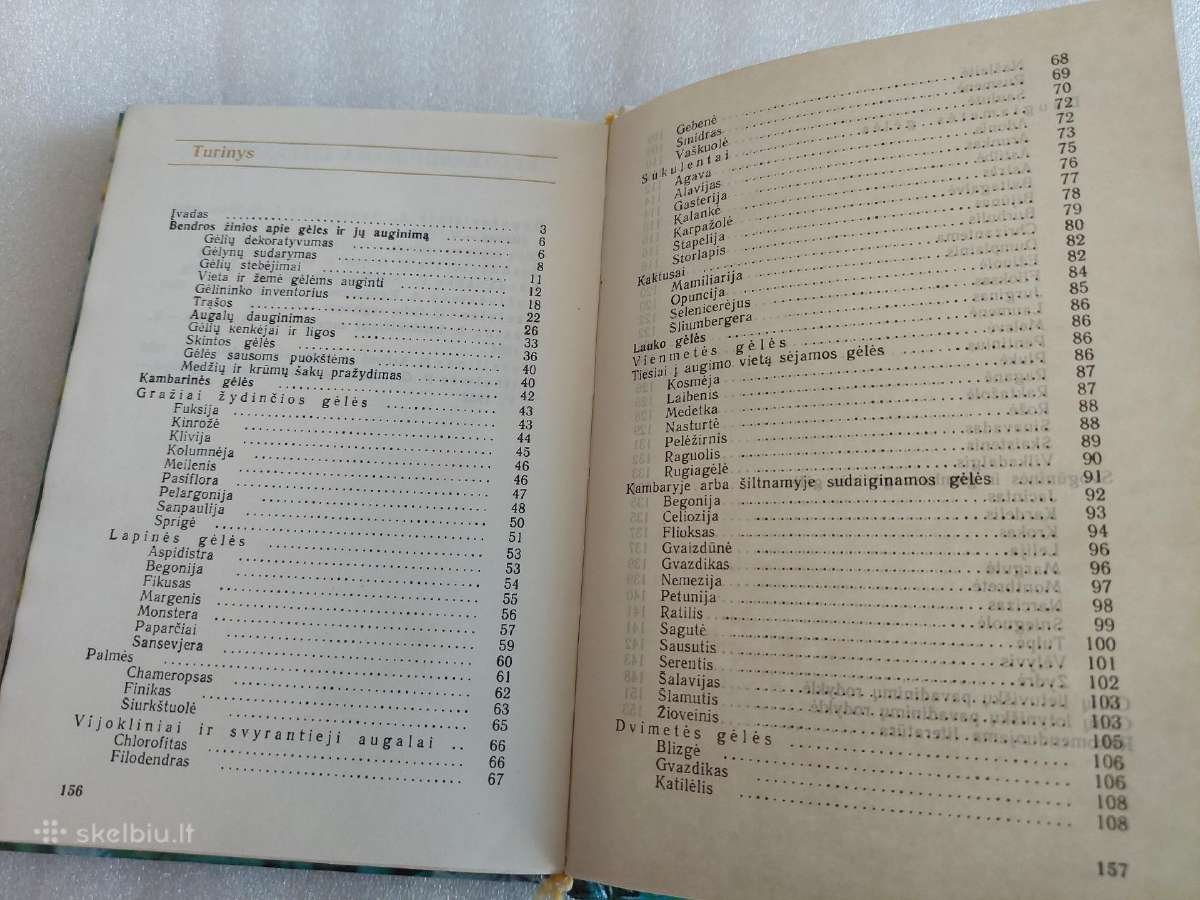 Turinys
Įvadas 3
Bendros žinios apie gėles ir jų auginimą 6
Gėlių dekoratyvumas 6
Gėlynų sudarymas 8
Gėlių stebėjimai 11
Vieta ir žemė gėlėms auginti 12
Gėlininko inventorius 18
Trąšos 22
Augalų dauginimas 26
Gėlių kenkėjai ir ligos 33
Skintos gėlės 36
Gėlės sausoms puokštėms 40
Medžių ir krūmų šakų pražydimas 40
Kambarinės gėlės 42
Gražiai žydinčios gėlės 43
Fuksija 43
Kinrožė 44
Klivija 45
Kolumnėja 46
Meilenis 46
Pasiflora 47
Pelargonija 48
Sanpaulija 50
Sprigė 51
Lapinės gėlės 53
Aspidistra 53
Begonija 54
Fikusas 55
Margenis 56
Monstera 57
Paparčiai 59
Sansevjera 60
Palmės 61
Chameropsas 62
Finikas 63
Šiurkštuolė 65
Vijokliniai ir svyrantieji augalai 66
Chlorofitas 66
Filodendras 67
156
Gebenė 68
Smidras 69
Vaškuolė 70
Sukulentai 72
Agava 72
Alavijas 73
Gasterija 75
Kalankė 76
Karpažolė 77
Stapelija 78
Storlapis 79
Kaktusai 80
Mamiliarija 82
Opuncija 82
Selenicerėjus 84
Sliumbergera 85
Lauko gėlės 86
Vienmetės gėlės 86
Tiesiai į augimo vietą sėjamos gėlės 86
Kosmėja 86
Laibenis 87
Medetka 87
Nasturtė 88
Pelėžirnis 88
Raguolis 89
Rugiagėlė 90
Kambaryje arba šiltnamyje sudaiginamos gėlės 91
Begonija 92
Celiozija 93
Flioksas 94
Gvaizdūnė 96
Gvazdikas 96
Nemezija 97
Petunija 98
Ratilis 99
Sagutė 100
Sausutis 101
Serentis 102
Šalavijas 103
Šlamutis 103
Žioveinis 105
Dvimetės gėlės 106
Blizgė 106
Gvazdikas 108
Katilėlis 108
157
skelbiu.lt